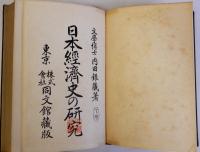 文學博士 內田銀藏著
日本經濟史の研究
東京 株式會社 同文館藏版